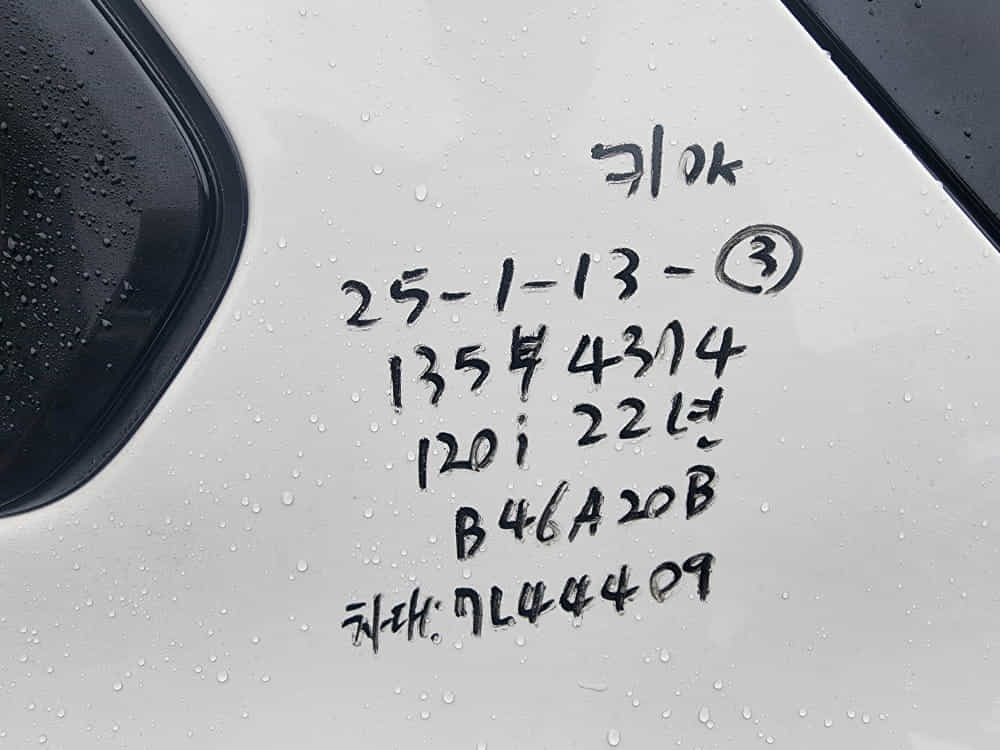 키 OK
25-1-13-③
135부 4374
120i 22년
B46A20B
차대: 7L44409